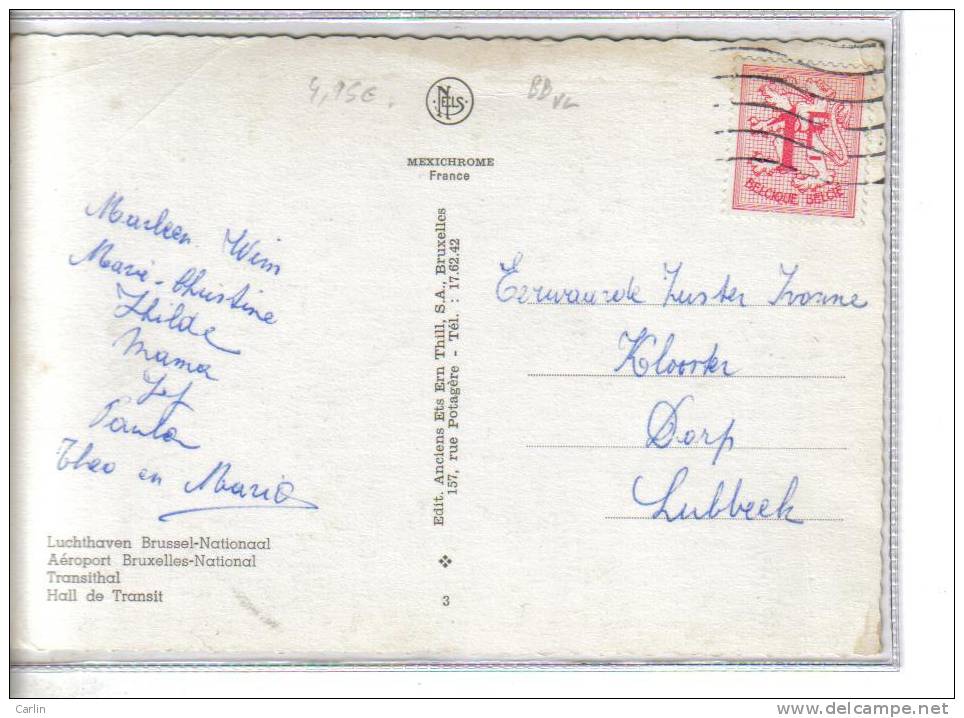 4,95€.
BB
NELS
MEXICHROME
France
1F
BELGIQUE BELGIË
Marleen Wim
Marie-Christine
Hhilde
Mama
Jef
Paula
Theo en Maria
Edit. Anciens Ets Ern Thill, S.A., Bruxelles
157, rue Potagère - Tél. : 17.62.42
Eerwaarde Zuster Ivonne
Klooster
Dorp
Lubbeek
Luchthaven Brussel-Nationaal
Aéroport Bruxelles-National
Transithal
Hall de Transit
3
Carlin
delcampe.net